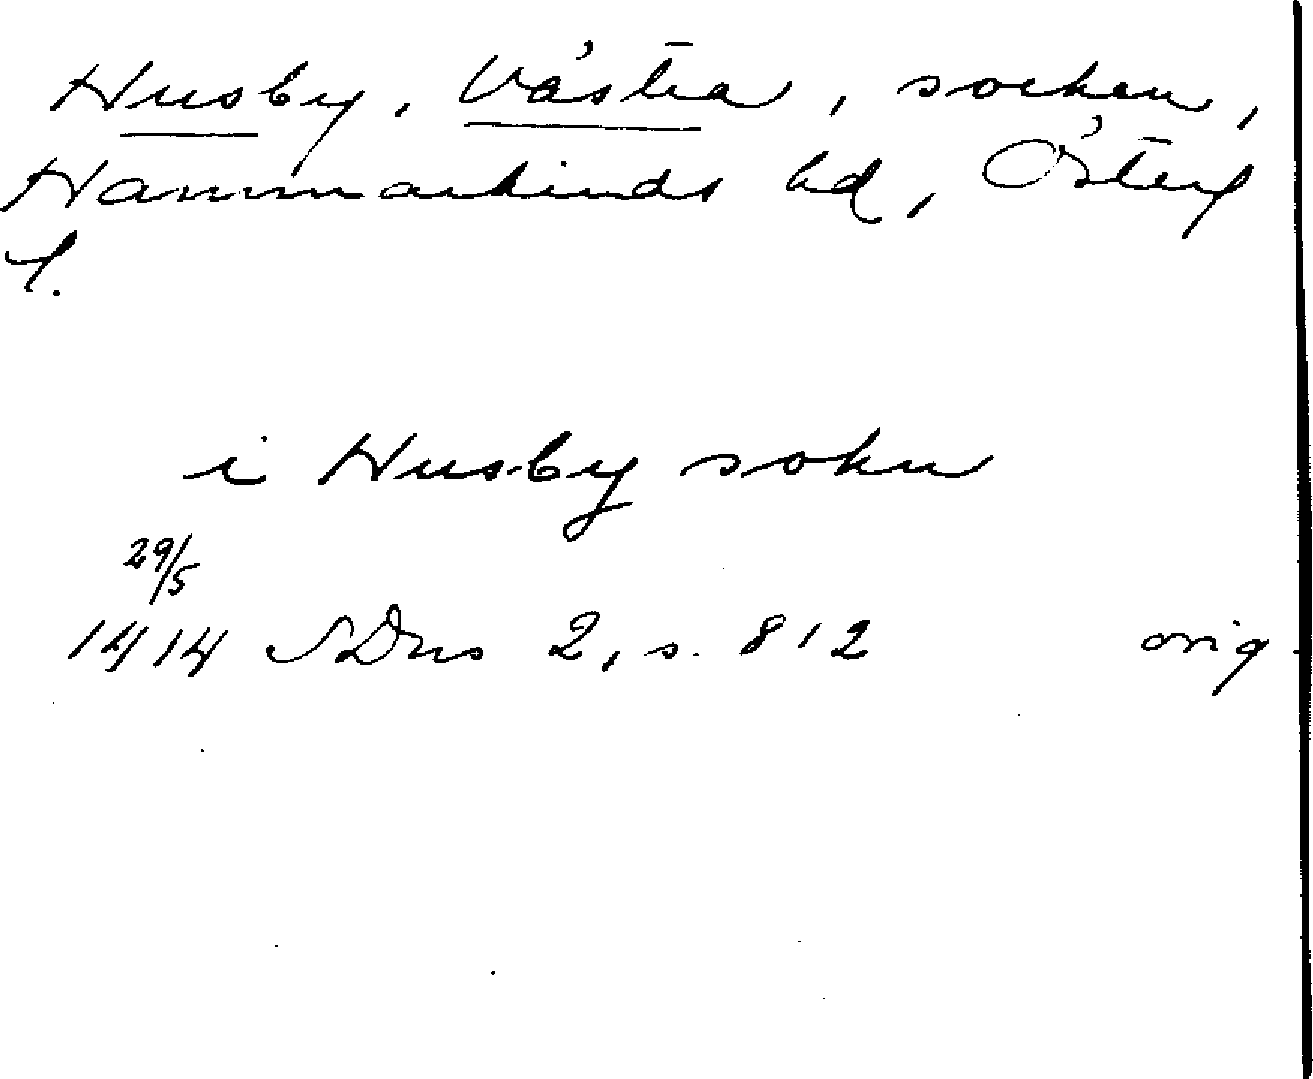 Husby, Västra, socken,
Hammarkinds hd, Österg
l.
i Husby sokn
29/5
1414 SDns 2, s. 812 orig